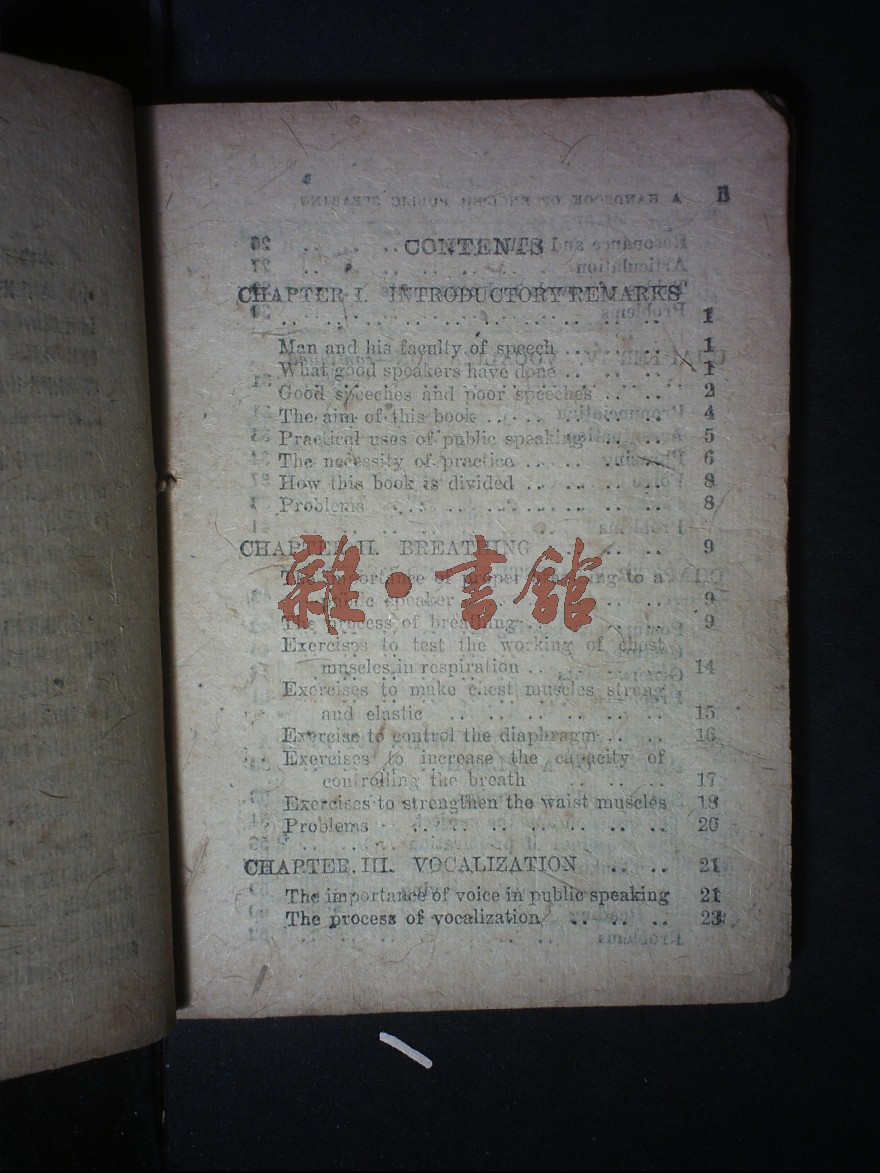 CONTENTS
CHAPTER I. INTRODUCTORY REMARKS
.. .. .. .. .. .. .. .. .. .. 1
Man and his faculty of speech .. .. .. 1
What good speakers have done .. .. .. 1
Good speeches and poor speeches .. .. 2
The aim of this book .. .. .. .. .. 4
Practical uses of public speaking .. .. 5
The necessity of practice .. .. .. .. 6
How this book is divided .. .. .. .. 8
Problems .. .. .. .. .. .. .. 8
CHAPTER II. BREATHING .. .. .. .. 9
The importance of proper breathing to a
public speaker .. .. .. .. .. 9
The process of breathing .. .. .. .. 9
Exercises to test the working of chest
muscles in respiration .. .. .. .. 14
Exercises to make chest muscles strong
and elastic .. .. .. .. .. .. 15
Exercise to control the diaphragm .. .. 16
Exercises to increase the capacity of
controlling the breath .. .. .. 17
Exercises to strengthen the waist muscles 19
Problems .. .. .. .. .. .. .. 20
CHAPTER III. VOCALIZATION .. .. 21
The importance of voice in public speaking 21
The process of vocalization .. .. .. 23
雜·書館